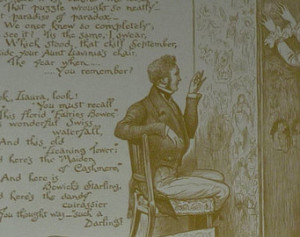 That puzzle wrought so neatly—
That paradise of paradox—
We once knew so completely;
see it? 'Tis the same, I swear,
Which stood, that chill September,
side your Aunt Lavinia's chair
The year when....
....You remember?
ok, Laura, look!
You must recall
This florid "Fairies' Bower"
wonderful Swiss
waterfall,
And this old
"Leaning Tower";
nd here's the "Maiden
of Cashmere,"
And here is
Bewick's Starling,
nd here's the dandy
cuirassier
you thought was "such a
Darling!"